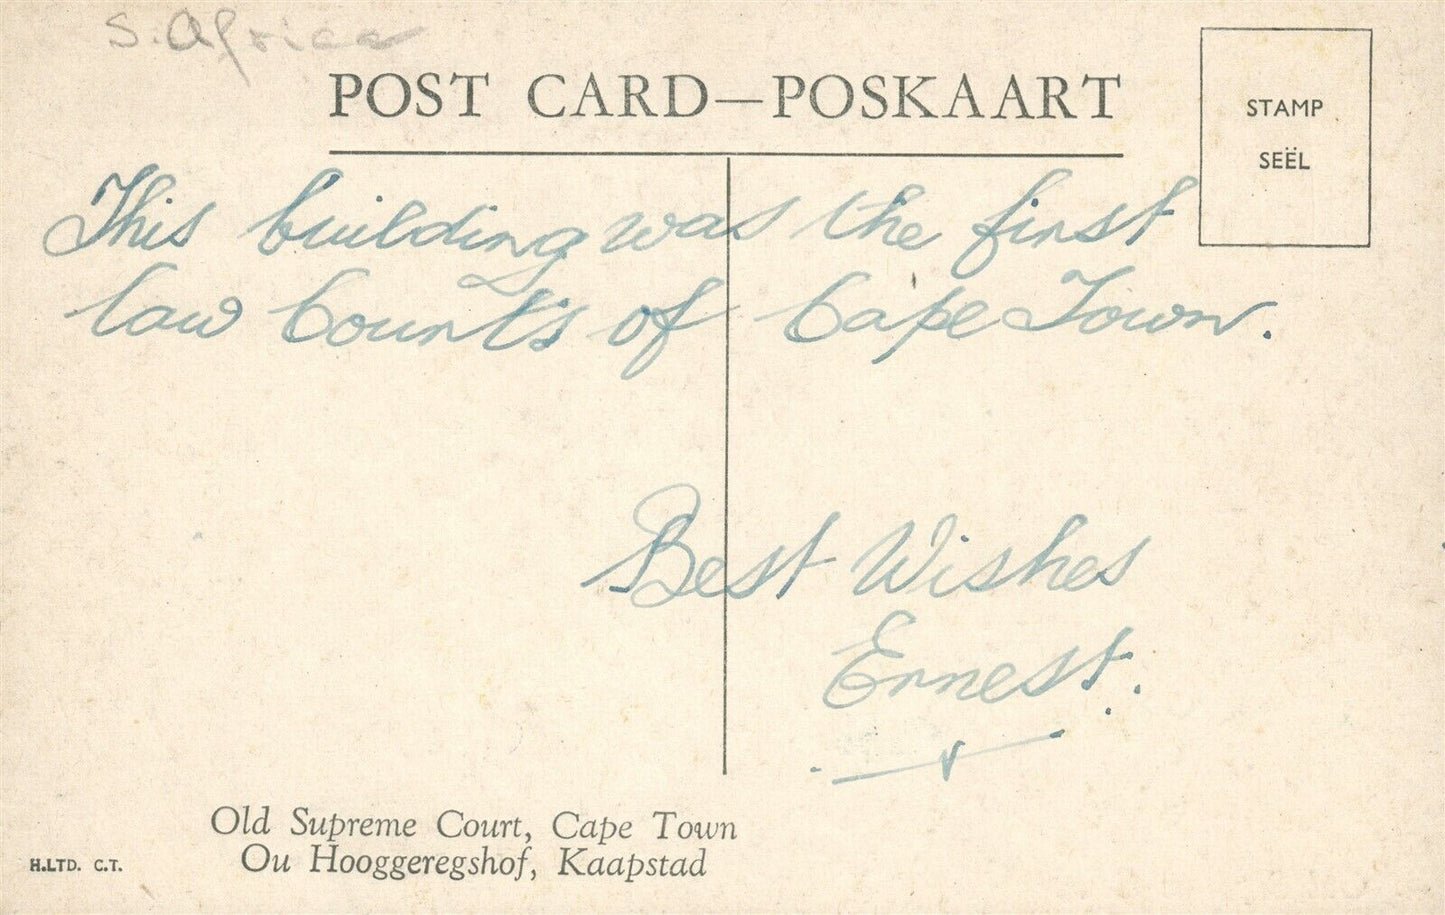 S. Africa
POST CARD—POSKAART
STAMP
SEËL
This building was the first
law Courts of Cape Town.
Best Wishes
Ernest.
Old Supreme Court, Cape Town
Ou Hooggeregshof, Kaapstad
H.LTD. C.T.